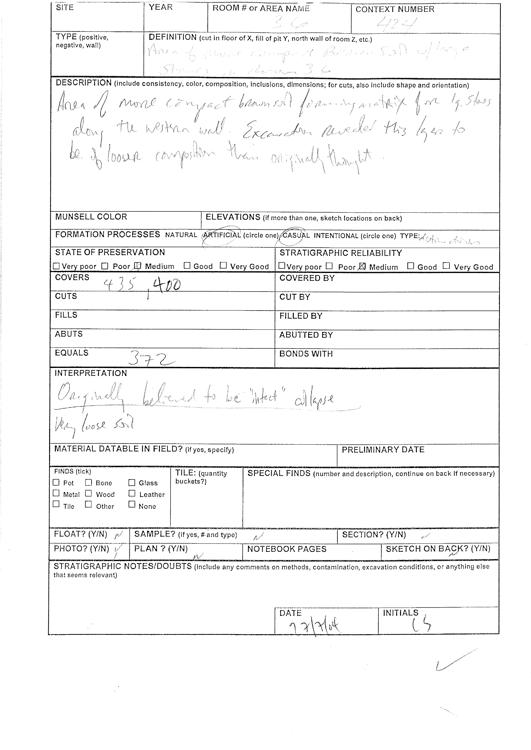 SITE YEAR ROOM # or AREA NAME CONTEXT NUMBER
36 424
TYPE (positive, negative, wall) DEFINITION (cut in floor of X, fill of pit Y, north wall of room Z, etc.)
Area of more compact Brown Soil w/large
Stones in room 36
DESCRIPTION (include consistency, color, composition, inclusions, dimensions; for cuts, also include shape and orientation)
Area of more compact brown soil forming matrix for lg. stones
along the western wall. Excavation revealed this layer to
be of looser composition than originally thought.
MUNSELL COLOR ELEVATIONS (if more than one, sketch locations on back)
FORMATION PROCESSES NATURAL ARTIFICIAL (circle one) CASUAL INTENTIONAL (circle one) TYPE:
STATE OF PRESERVATION STRATIGRAPHIC RELIABILITY
Very poor Poor Medium Good Very Good Very poor Poor Medium Good Very Good
COVERS 435, 400 COVERED BY
CUTS CUT BY
FILLS FILLED BY
ABUTS ABUTTED BY
EQUALS 372 BONDS WITH
INTERPRETATION
Originally believed to be "intact" collapse
Very loose soil
MATERIAL DATABLE IN FIELD? (if yes, specify) PRELIMINARY DATE
FINDS (tick) TILE: (quantity buckets?) SPECIAL FINDS (number and description, continue on back if necessary)
Pot Bone Glass
Metal Wood Leather
Tile Other None
FLOAT? (Y/N) N SAMPLE? (if yes, # and type) N SECTION? (Y/N)
PHOTO? (Y/N) Y PLAN ? (Y/N) N NOTEBOOK PAGES SKETCH ON BACK? (Y/N)
STRATIGRAPHIC NOTES/DOUBTS (include any comments on methods, contamination, excavation conditions, or anything else
that seems relevant)
DATE INITIALS
27/7/04 CS